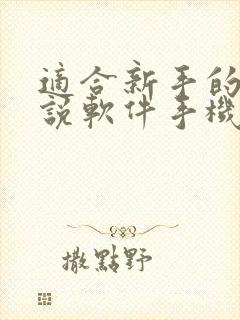 適合新手的
說軟件手機
撒點野